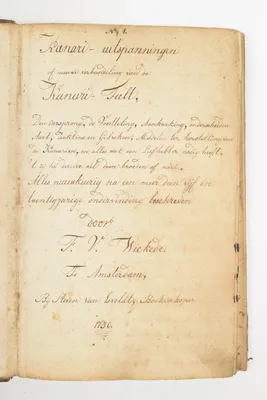 Kanari-uitspanningen
of nieuwe verhandeling van de
Kanari-Teelt.
Den oorsprong, de Voortteling, Aankweeking, onderscheiden
Aart, Ziektens en Gebreken; Middelen ter herstelling van
de Kanarien, en alles wat een Liefhebber nodig heeft,
't zy tot
Alles naauwkeurig na een meer dan vijf en
twentigjarige ondervinding beschreven
Door
F. V. Wickede.
Te Amsterdam,
By Steven van Esveldt, Boekverkoper